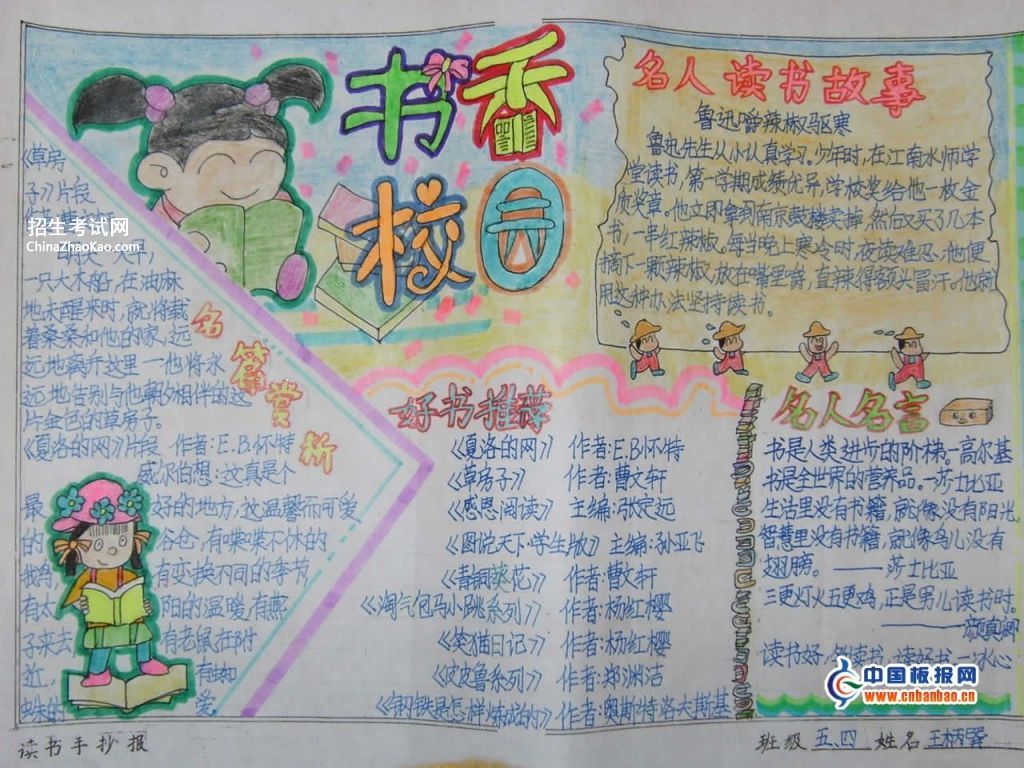 书香
校园
名人读书故事
鲁迅嚼辣椒驱寒
鲁迅先生从小认真学习。少年时，在江南水师学
堂读书，第一学期成绩优异，学校奖给他一枚金
质奖章。他立即拿到南京鼓楼卖掉，然后又买了几本
书，一串红辣椒。每当晚上寒冷时，夜读难忍，他便
摘下一颗辣椒，放在嘴里嚼，直辣得额头冒汗。他就
用这种办法坚持读书。
《草房
子》片段
招生考试网
ChinaZhaoKao.com
明天一大早，
一只大木船，在油麻
地未醒来时，就将载
着桑桑和他的家，远
远地离开这里一他将永
远地告别与他朝夕相伴的这
片金色的草房子。
名篇赏析
《夏洛的网》片段 作者：E.B.怀特
威尔伯想：这真是个
最 好的地方，这温馨而可爱
的 谷仓，有喋喋不休的
我鸟， 有变换不同的季节，
有太 阳的温暖，有燕
子来去 有老鼠在附
近， 有蜘
蛛的 爱
好书推荐
《夏洛的网》 作者：E.B.怀特
《草房子》 作者：曹文轩
《感恩阅读》 主编：张定远
《图说天下·学生版》 主编：孙亚飞
《青铜葵花》 作者：曹文轩
《淘气包马小跳系列》 作者：杨红樱
《笑猫日记》 作者：杨红樱
《皮皮鲁系列》 作者：郑渊洁
《钢铁是怎样炼成的》 作者：奥斯特洛夫斯基
名人名言
书是人类进步的阶梯。一高尔基
书是全世界的营养品。一莎士比亚
生活里没有书籍，就像没有阳光，
智慧里没有书籍，就像鸟儿没有
翅膀。——莎士比亚
三更灯火五更鸡，正是男儿读书时。
——颜真卿
读书好，多读书，读好书。一冰心
中国板报网
www.cnbanbao.cn
读书手抄报
班级 五、四 姓名 王炳